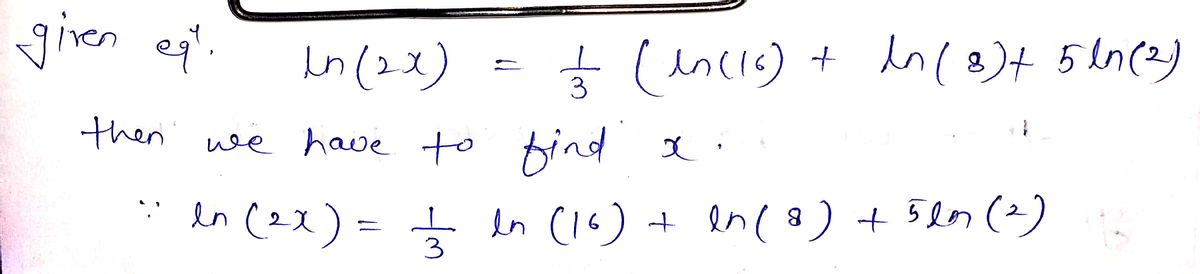 given eqⁿ. ln(2x) = 1/3 (ln(16) + ln(8)+ 5ln(2)
then we have to find x.
∵ ln(2x) = 1/3 ln(16) + ln(8) + 5ln(2)